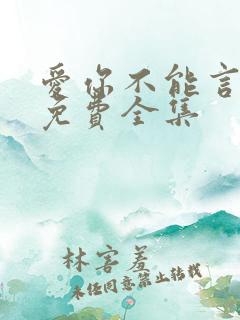 愛你不能言
免費全集
林害羞
未经同意禁止转载